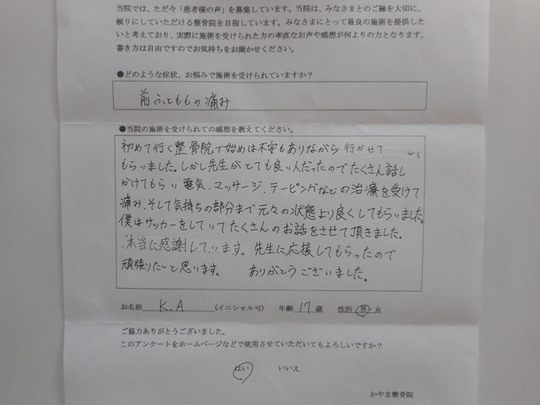 当院では、ただ今「患者様の声」を募集しています。当院は、みなさまとのご縁を大切に、
頼りにしていただける整骨院を目指しています。みなさまにとって最良の施術を提供した
いと考えており、実際に施術を受けられた方の率直なお声や感想が何よりの力となります。
書き方は自由ですのでお気持ちをお聞かせください。
●どのような症状、お悩みで施術を受けられていますか？
前ふとももの痛み
●当院の施術を受けられての感想を教えてください。
初めて行く整骨院で始めは不安もありながら行かせて
もらいました。しかし先生がとても良い人だったのでたくさん話し
かけてもらい電気、マッサージ、テーピングなどの治療を受けて
痛み、そして気持ちの部分まで元々の状態より良くしてもらいました。
僕はサッカーをしていてたくさんのお話をさせて頂きました。
本当に感謝しています。先生に応援してもらったので
頑張りたいと思います。 ありがとうございました。
お名前 K.A (イニシャル可) 年齢 17歳 性別 男 女
ご協力ありがとうございました。
このアンケートをホームページなどで使用させていただいてもよろしいですか？
はい いいえ
かやま整骨院